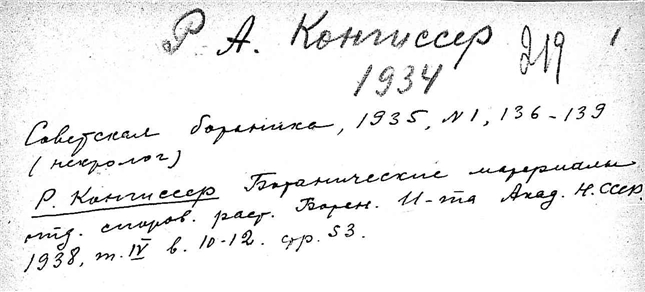 Р А. Конгиссер 219 1
1934
Советская ботаника, 1935, №1, 136-139
(некролог)
Р. Конгиссер Ботанические материалы
отд. споров. раст. Ботан. И-та Акад. Н. СССР.
1938, т. IV в. 10-12. стр. 53.